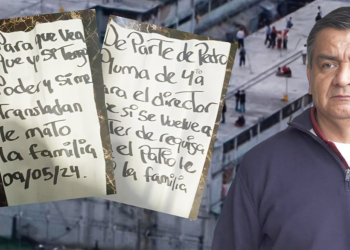 Para que Vea
que yo si tengo
Poder y si me
transladan
le mato
la familia
09/05/24.
De Parte de Pedro
Pluma de 4
Para el director
se si se vuelve a
ter de requisa
el Patio le
la familia